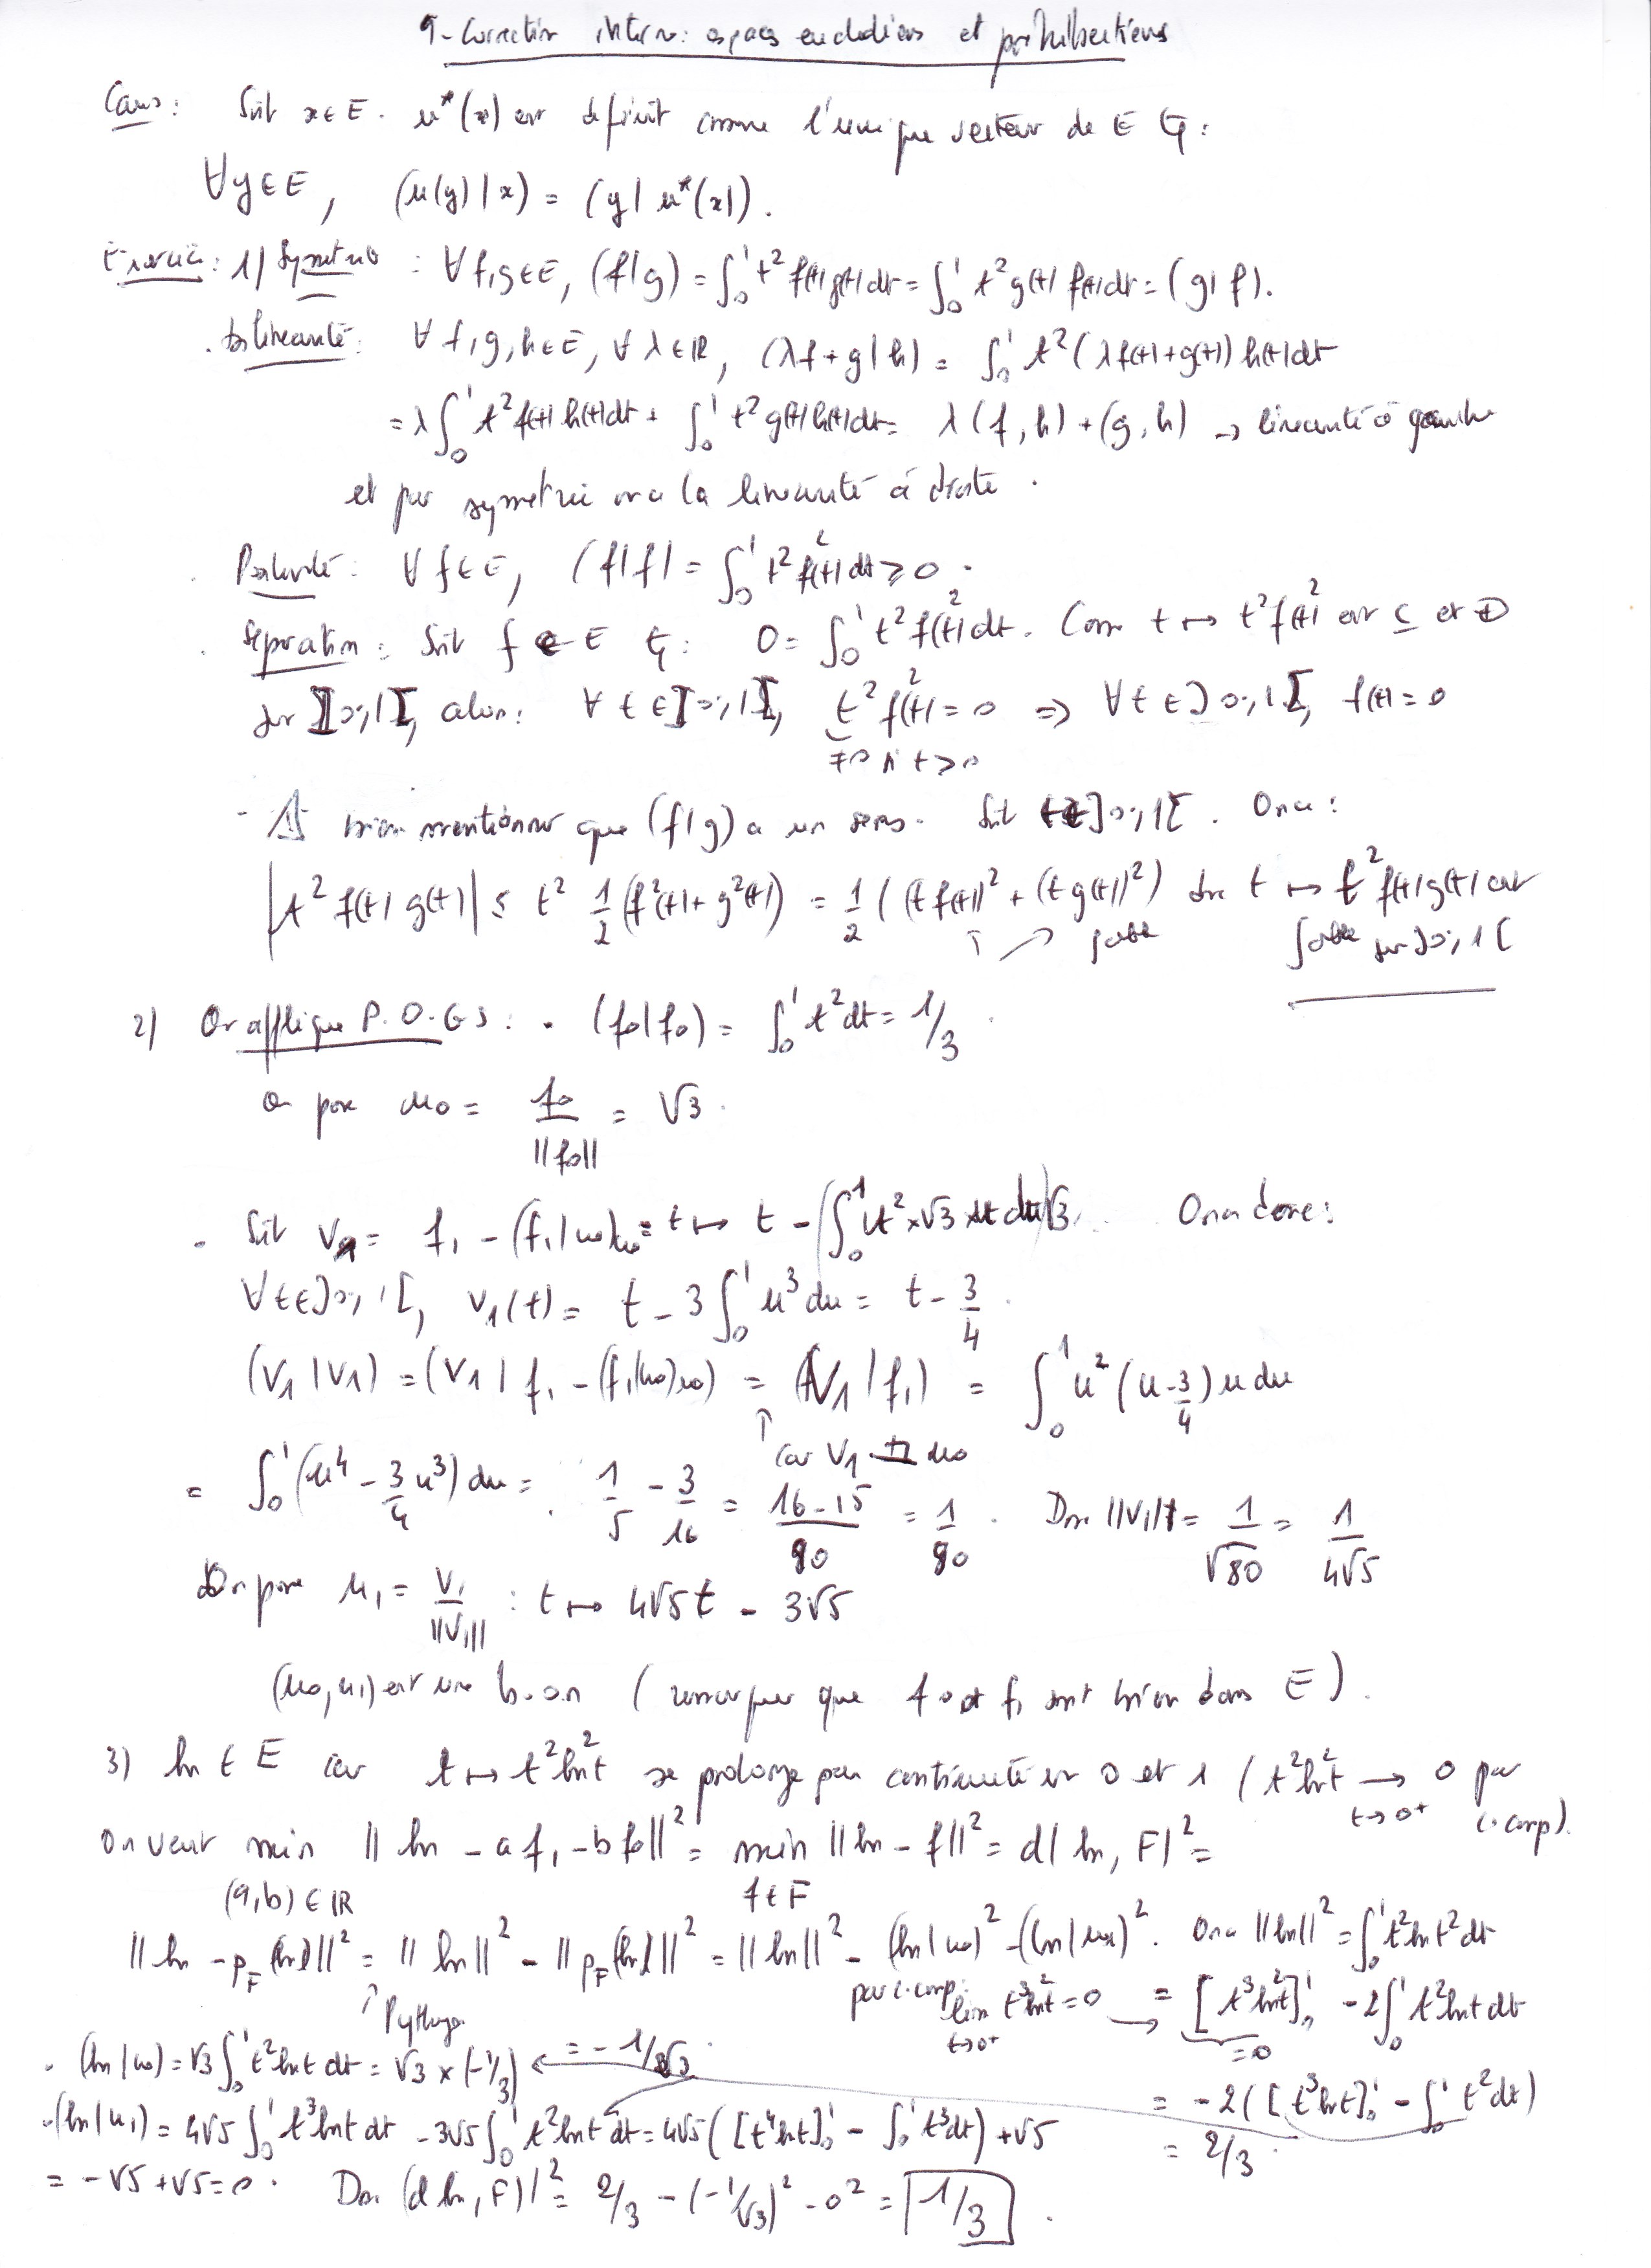 9 - Correction interro: espaces euclidiens et préhilbertiens
Cours: Soit x∈E. u*(x) est définit comme l'unique vecteur de E tq:
∀y∈E, (u(y)|x) = (y|u*(x)).
Exercice: 1) Symétrie : ∀f,g∈E, (f|g) = ∫₀¹ t² f(t)g(t)dt = ∫₀¹ t² g(t) f(t)dt = (g|f).
. bilinéarité: ∀ f,g,h∈E, ∀λ∈ℝ, (λf+g|h) = ∫₀¹ t²(λf(t)+g(t)) h(t)dt
= λ∫₀¹ t² f(t) h(t)dt + ∫₀¹ t² g(t)h(t)dt = λ(f,h) + (g,h) → linéarité à gauche
et par symétrie on a la linéarité à droite.
. Positivité: ∀f∈E, (f|f) = ∫₀¹ t² f(t)² dt ≥ 0.
. Séparation: Soit f∈E tq: 0 = ∫₀¹ t² f(t)² dt. Comme t ↦ t² f(t)² est C et ⊕
sur ]0;1[, alors: ∀t∈]0;1[, t² f(t)² = 0 ⇒ ∀t∈]0;1[, f(t) = 0
≠0 si t>0
- ⚠ bien mentionner que (f|g) a un sens. Soit t∈]0;1[. On a:
|t² f(t) g(t)| ≤ t² 1/2 (f²(t)+g²(t)) = 1/2 ((t f(t))² + (t g(t))²) donc t ↦ t² f(t)g(t) est
↑ ↗ ∫able ∫able sur ]0;1[
2) On applique P.O.G.S: . (f₀|f₀) = ∫₀¹ t² dt = 1/3.
On pose u₀ = f₀/||f₀|| = √3.
. Soit v₁ = f₁ - (f₁|u₀)u₀ = t ↦ t - (∫₀¹ u² × √3 × u du)√3. On a donc:
∀t∈]0;1[, v₁(t) = t - 3∫₀¹ u³ du = t - 3/4.
(v₁|v₁) = (v₁| f₁ - (f₁|u₀)u₀) = (v₁|f₁) = ∫₀¹ u² (u - 3/4) u du
↑ car v₁ ⊥ u₀
= ∫₀¹ (u⁴ - 3/4 u³) du = 1/5 - 3/16 = (16-15)/80 = 1/80. Donc ||v₁|| = 1/√80 = 1/4√5
On pose u₁ = v₁/||v₁|| : t ↦ 4√5 t - 3√5
(u₀,u₁) est une b.o.n (remarquer que f₀ et f₁ sont bien dans E).
3) ln ∈ E car t ↦ t² ln²t se prolonge par continuité en 0 et 1 (t² ln²t → 0 par
t→0⁺ c.comp).
On veut min || ln - a f₁ - b f₀||² = min ||ln - f||² = d(ln, F)² =
(a,b) ∈ ℝ f∈F
|| ln - p_F(ln)||² = || ln||² - ||p_F(ln)||² = ||ln||² - (ln|u₀)² - (ln|u₁)². On a ||ln||² = ∫₀¹ t² ln t² dt
↑ Pythago. par c.comp: lim t³ ln²t = 0 → = [t³ ln²t]₀¹ - 2∫₀¹ t² ln t dt
t→0⁺ =0
. (ln|u₀) = √3∫₀¹ t² ln t dt = √3 × (-1/3) ← = -1/√3.
= -2([t³ ln t]₀¹ - ∫₀¹ t² dt)
. (ln|u₁) = 4√5 ∫₀¹ t³ ln t dt - 3√5∫₀¹ t² ln t dt = 4√5([t⁴ ln t]₀¹ - ∫₀¹ t³ dt) + √5
= 2/3.
= -√5 + √5 = 0. Donc (d ln, F))² = 2/3 - (-1/√3)² - 0² = 1/3.